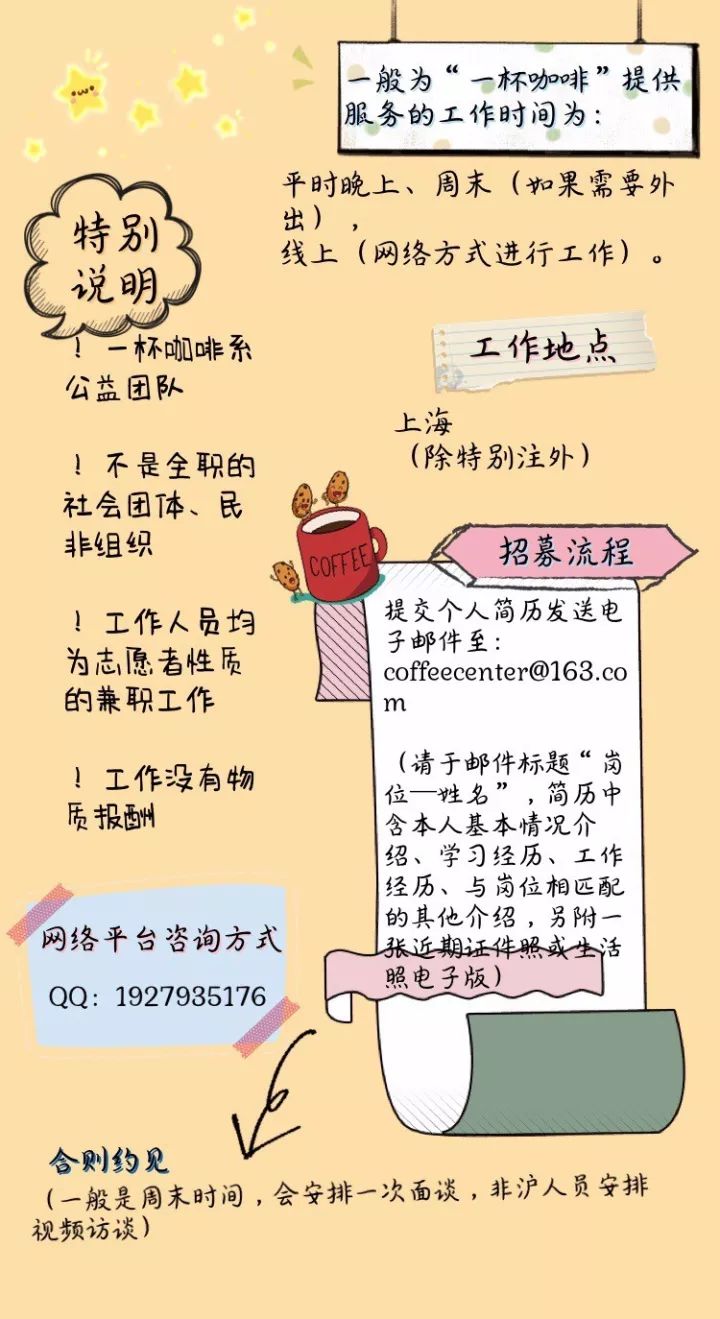 一般为“一杯咖啡”提供
服务的工作时间为：
平时晚上、周末（如果需要外
出），
线上（网络方式进行工作）。
特别
说明
！一杯咖啡系
公益团队
！不是全职的
社会团体、民
非组织
！工作人员均
为志愿者性质
的兼职工作
！工作没有物
质报酬
工作地点
上海
（除特别注外）
COFFEE
招募流程
提交个人简历发送电
子邮件至：
coffeecenter@163.co
m
（请于邮件标题“岗
位—姓名”，简历中
含本人基本情况介
绍、学习经历、工作
经历、与岗位相匹配
的其他介绍，另附一
张近期证件照或生活
照电子版）
网络平台咨询方式
QQ：1927935176
合则约见
（一般是周末时间，会安排一次面谈，非沪人员安排
视频访谈）